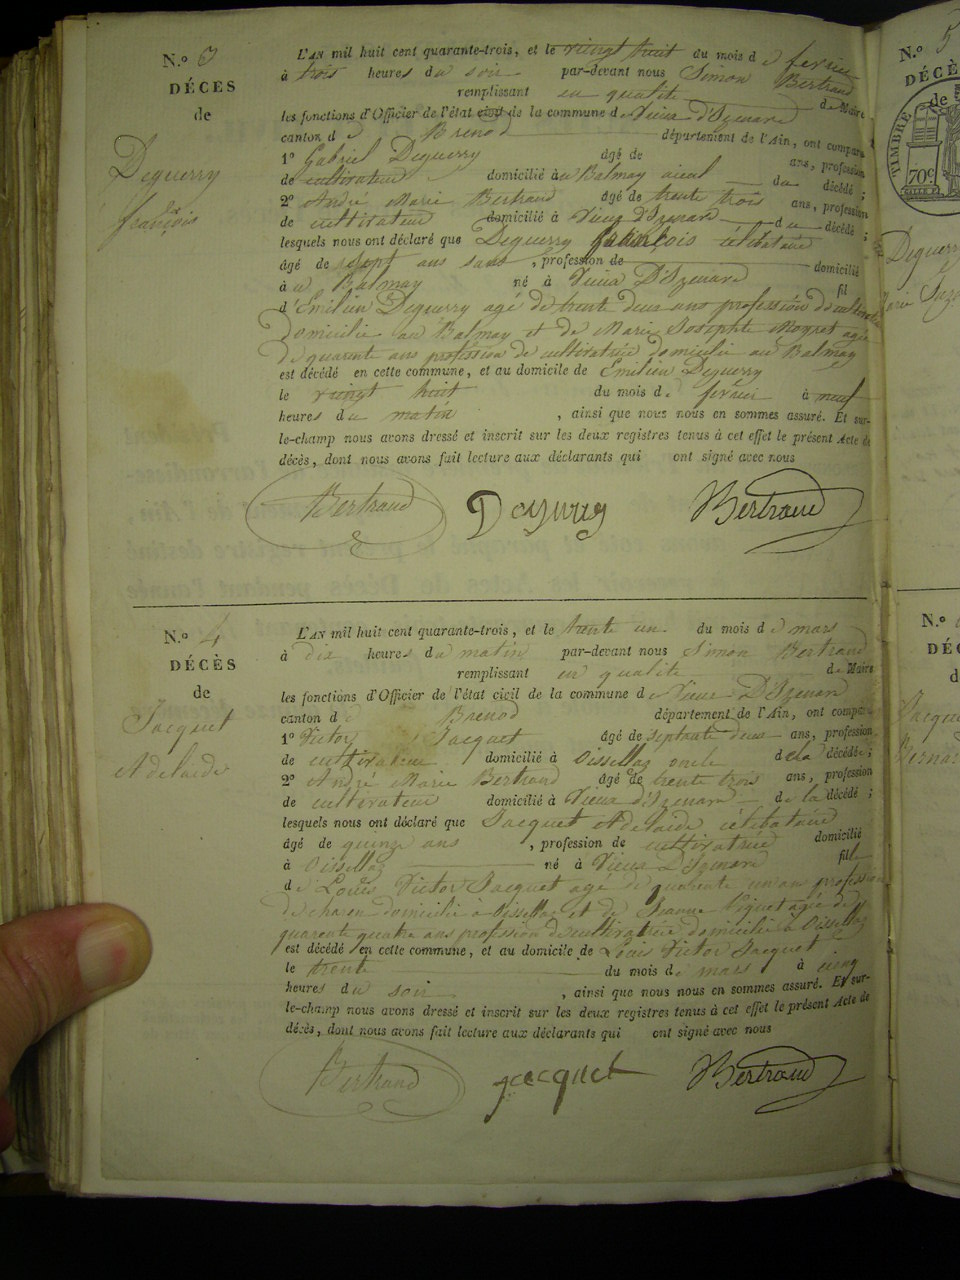 N.º 3
DÉCES
de
Deguerry
françois
L'AN mil huit cent quarante-trois, et le vingt huit du mois de fevrier
à trois heures du soir par-devant nous Simon Bertrand
remplissant en qualité de Maire
les fonctions d'Officier de l'état civil de la commune de Vieux d'Izenave
canton de Brenod département de l'Ain, ont comparu
1º Gabriel Deguerry âgé de ans, profession
de cultivateur domicilié au Balmay aieul du décédé ;
2º Andre Marie Bertrand âgé de trente trois ans, profession
de cultivateur domicilié à Vieux d'Izenave du décédé ;
lesquels nous ont déclaré que Deguerry françois célibataire
âgé de sept ans sans , profession de domicilié
à au Balmay né à Vieux D'Izenave fil
d'Emilien Deguerry agé de trente deux ans profession de cultivateur
Domicilié au Balmay et de Marie Josephte agée
De quarente ans profession de cultivatrice domicilié au Balmay
est décédé en cette commune, et au domicile de Emilien Deguerry
le vingt huit du mois de fevrier à neuf
heures du matin , ainsi que nous nous en sommes assuré. Et sur-
le-champ nous avons dressé et inscrit sur les deux registres tenus à cet effet le présent Acte de
décès, dont nous avons fait lecture aux déclarants qui ont signé avec nous
Bertrand Bertrand
N.º 4
DÉCÈS
de
Jacquet
Adelaide
L'AN mil huit cent quarante-trois, et le trente un du mois de mars
à dix heures du matin par-devant nous Simon Bertrand
remplissant en qualité de Maire
les fonctions d'Officier de l'état civil de la commune de Vieux D'Izenave
canton de Brenod département de l'Ain, ont comparu
1º Victor Jacquet âgé de septante deux ans, profession
de cultivateur domicilié à Oisselaz oncle de la décédée ;
2º André Marie Bertrand âgé de trente trois ans, profession
de cultivateur domicilié à Vieux d'Izenave de la décédé ;
lesquels nous ont déclaré que Jacquet Adelaide célibataire
âgé de quinze ans , profession de cultivatrice domicilié
à Oisselaz né à Vieux D'Izenave fille
de Louis Victor Jacquet agé de quarente un an profession
de domicilié à Oisselaz et de Jeanne agée de
quarente quatre ans profession de cultivatrice domicilié à Oisselaz
est décédé en cette commune, et au domicile de Louis Victor Jacquet
le trente du mois de mars à cinq
heures du soir , ainsi que nous nous en sommes assuré. Et sur-
le-champ nous avons dressé et inscrit sur les deux registres tenus à cet effet le présent Acte de
décès, dont nous avons fait lecture aux déclarants qui ont signé avec nous
Bertrand jacquet Bertrand
N.º 5
DÉCÈS
de
TIMBRE
70c
Deguerry